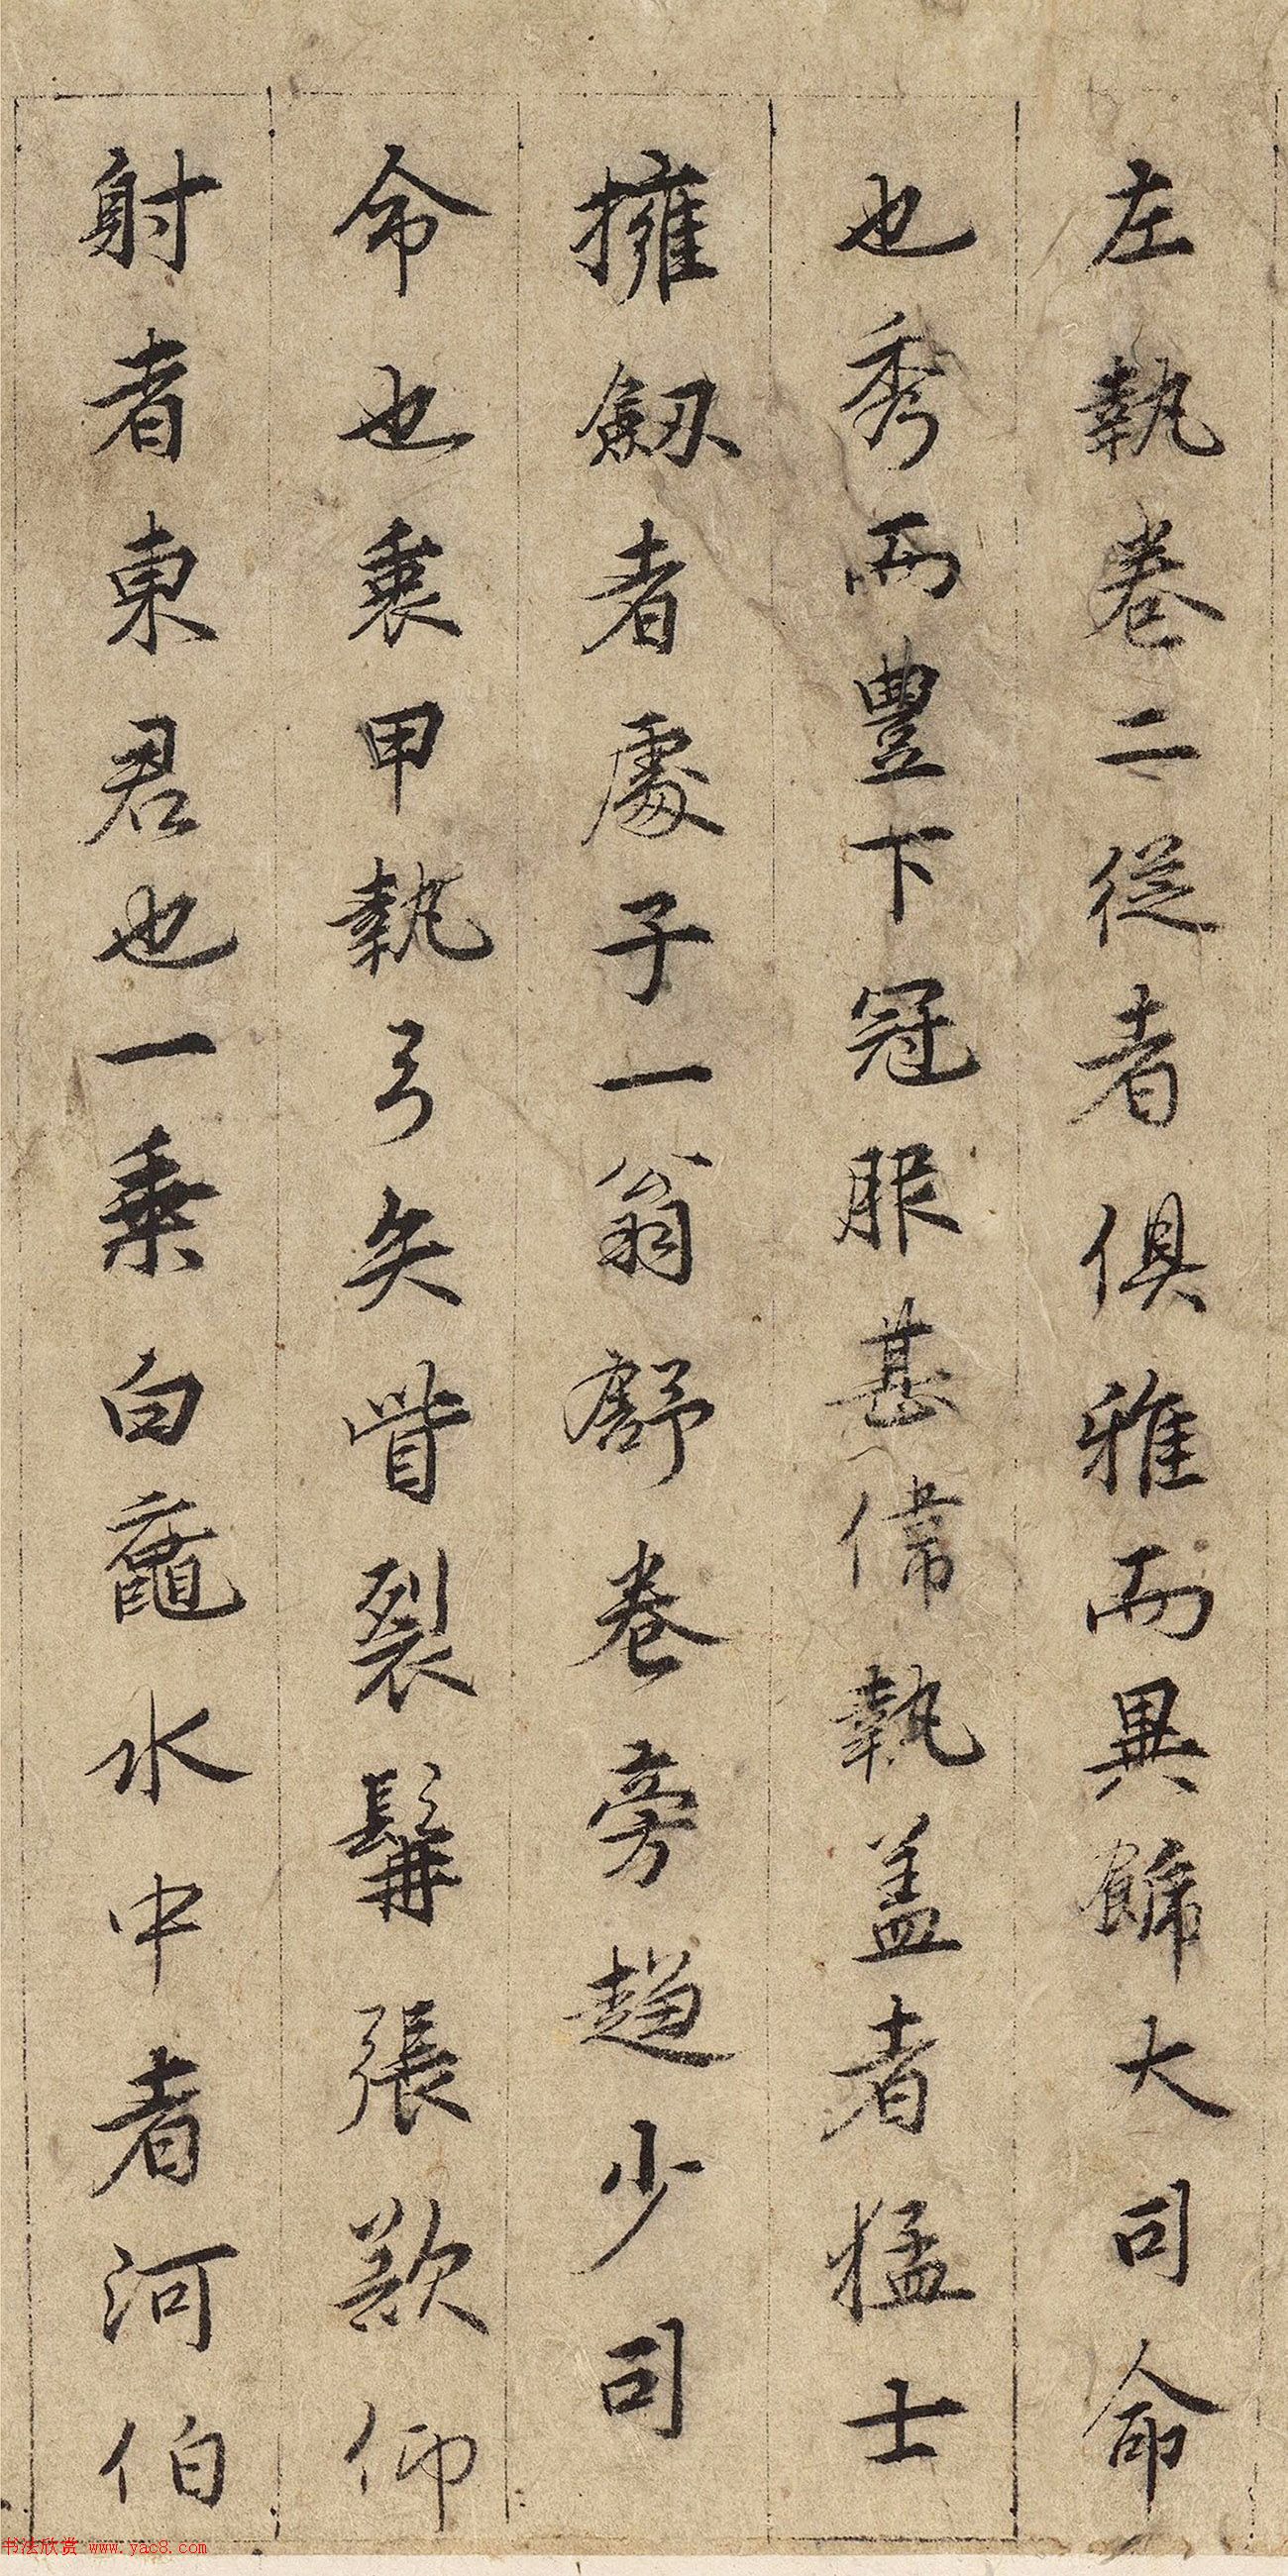 左執卷二從者俱雅而異飾大司命
也秀而豊下冠服甚偉執盖者猛士
擁劔者處子一翁舒卷旁趨少司
命也裹甲執弓矢眥裂髯張欲仰
射者東君也一乗白黿水中者河伯
书法欣赏 www.yac8.com